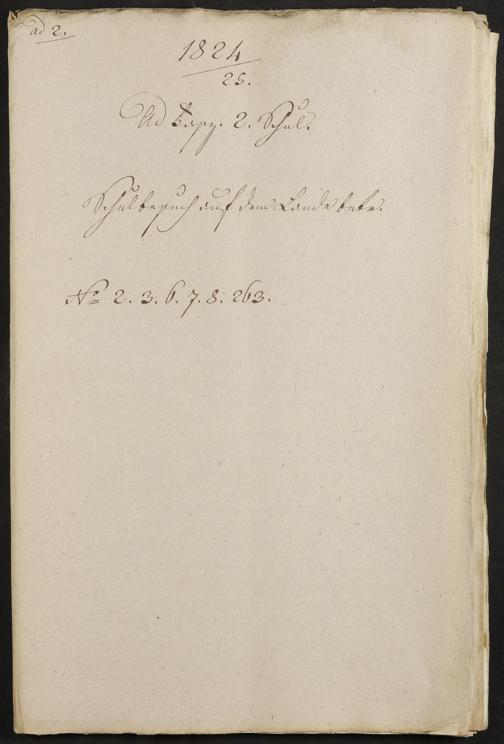 ad 2.
1824
25.
Ad Kapp. 2. Schul.
Schulbesuch auf dem Lande betr.
No 2. 3. 6. 7. 8. 263.